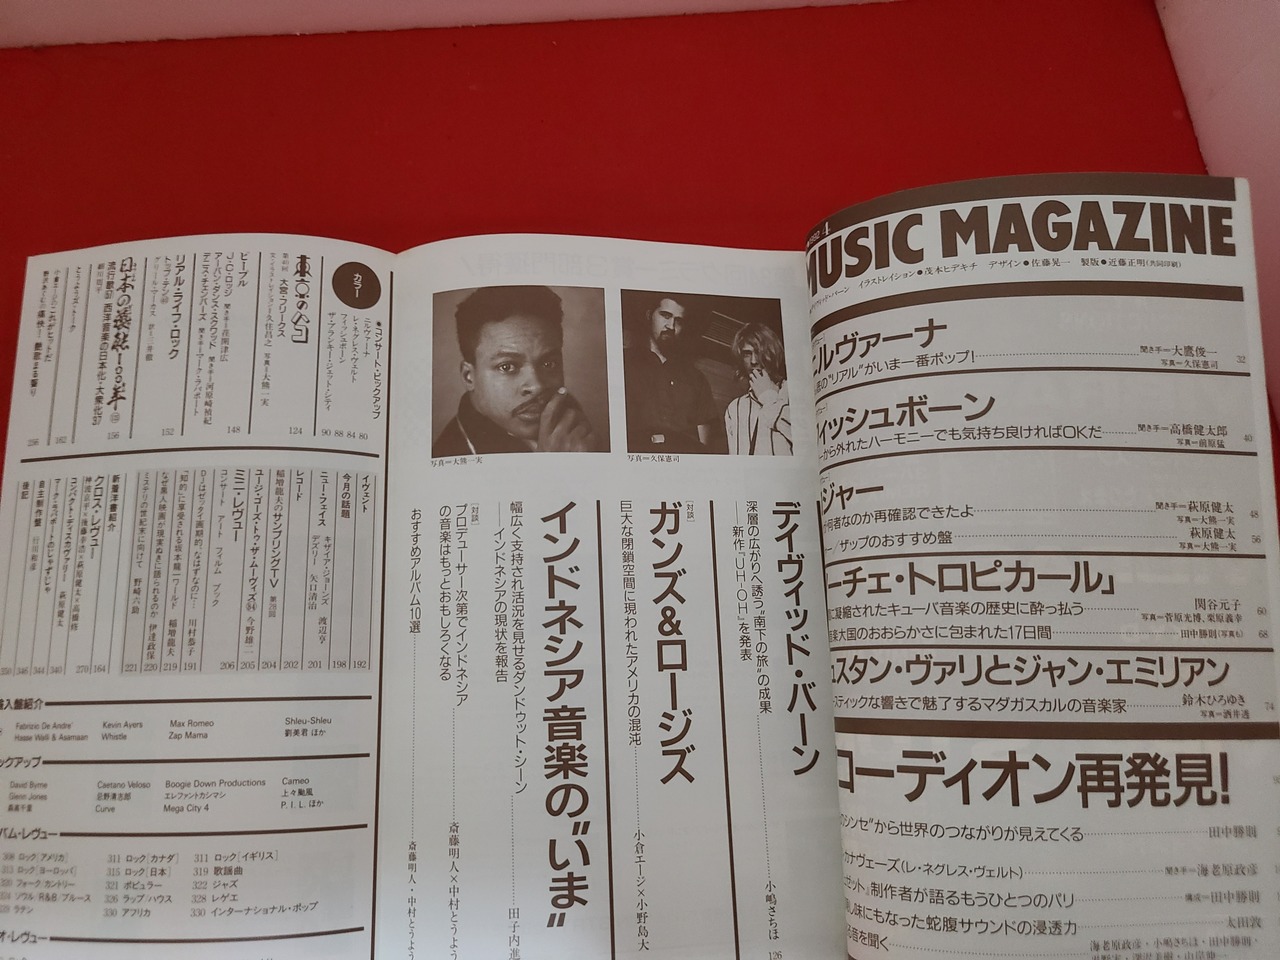 MUSIC MAGAZINE
イラストレイション●茂本ヒデキチ デザイン●佐藤晃一 製版●近藤正明(共同印刷)
ルヴァーナ
の"リアル"がいま一番ポップ!
聞き手=大鷹俊一
写真=久保憲司
32
ィッシュボーン
から外れたハーモニーでも気持ち良ければOKだ
聞き手=高橋健太郎
写真=前原猛
40
ジャー
何者なのか再確認できたよ
聞き手=萩原健太
写真=大熊一実
48
ー/ザップのおすすめ盤
萩原健太
写真=大熊一実
56
ーチェ・トロピカール」
に凝縮されたキューバ音楽の歴史に酔っ払う
関谷元子
写真=菅原光博、栗原義幸
60
音楽大国のおおらかさに包まれた17日間
田中勝則(写真も)
68
スタン・ヴァリとジャン・エミリアン
スティックな響きで魅了するマダガスカルの音楽家
鈴木ひろゆき
写真=酒井透
74
コーディオン再発見!
から世界のつながりが見えてくる
田中勝則
カナヴェーズ(レ・ネグレス・ヴェルト)
聞き手=海老原政彦
ゼット』制作者が語るもうひとつのパリ
構成=田中勝則
味にもなった蛇腹サウンドの浸透力
太田敦
音を聞く
海老原政彦・小嶋さちほ・田中勝則・
写真=大熊一実
写真=久保憲司
デイヴィッド・バーン
深層の広がりへ誘う"南下の旅"の成果
新作『UH-OH』を発表
小嶋さちほ
126
[対談]
ガンズ&ロージズ
巨大な閉鎖空間に現われたアメリカの混沌
小倉エージ×小野島大
インドネシア音楽の"いま"
幅広く支持され活況を見せるダンドゥット・シーン
─インドネシアの現状を報告
田子内進
[対談]
プロデューサー次第でインドネシア
の音楽はもっとおもしろくなる
斎藤明人×中村とうよう
おすすめアルバム10選
斎藤明人・中村とうよう
カラー
●コンサート・ピックアップ
ニルヴァーナ
レ・ネグレス・ヴェルト
フィッシュボーン
ザ・ブランキー・ジェット・シティ
90 88 84 80
東京のハコ
第40回 大宮・フリークス
文・イラストレイション=久住昌之 写真=大熊一実
124
ピープル
J・C・ロッジ 聞き手=花房浩一
アーバン・ダンス・スクワッド 聞き手=河原崎禎紀
デニス・チェンバーズ 聞き手=マーク・ラパポート
148
リアル・ライフ・ロック
トップ・テン
グリール・マーカス 訳=三井徹
152
日本の葬続一〇〇年
流行歌 西洋音楽の日本化・大衆化37
細川周平
156
とうようズ・トーク
162
256
イヴェント
192
今月の話題
198
ニュー・フェイス
キザイア・ジョーンズ 渡辺亨
デズリー 矢口清治
201
レコード
202
稲増龍夫のサンプリングTV 第28回
204
ユージ・ゴーズ・トゥ・ザ・ムーヴィズ 今野雄二
205
ミニ・レヴュー
コンサート アート フィルム ブック
206
川村恭子
191
『知的』に享受される坂本龍一ワールド 稲増龍夫
219
なぜ黒人映画が現実ぬきに語られるのか 伊達政保
220
ミステリの世紀末に向けて 野崎六助
221
新着洋書紹介
164
クロス・レヴュー
萩原健太×高橋修
270
コンパクト・ディスカヴァリー 萩原健太
340
マーク・ラパポートのじゃずじゃ
344
自主制作盤 行川和彦
346
後記
350
輸入盤紹介
Fabrizio De Andre' Kevin Ayers Max Romeo Shleu-Shleu
Hasse Walli & Asamaan Whistle Zap Mama 劉美君 ほか
ックアップ
David Byrne Caetano Veloso Boogie Down Productions Cameo
Glenn Jones 忌野清志郎 エレファントカシマシ 上々颱風
森高千里 Curve Mega City 4 P.I.L. ほか
バム・レヴュー
308 ロック[アメリカ] 311 ロック[カナダ] 311 ロック[イギリス]
313 ロック[ヨーロッパ] 315 ロック[日本] 319 歌謡曲
320 フォーク/カントリー 321 ポピュラー 322 ジャズ
324 ソウル/R&B/ブルース 326 ラップ/ハウス 328 レゲエ
329 ラテン 330 アフリカ 330 インターナショナル・ポップ
オ・レヴュー